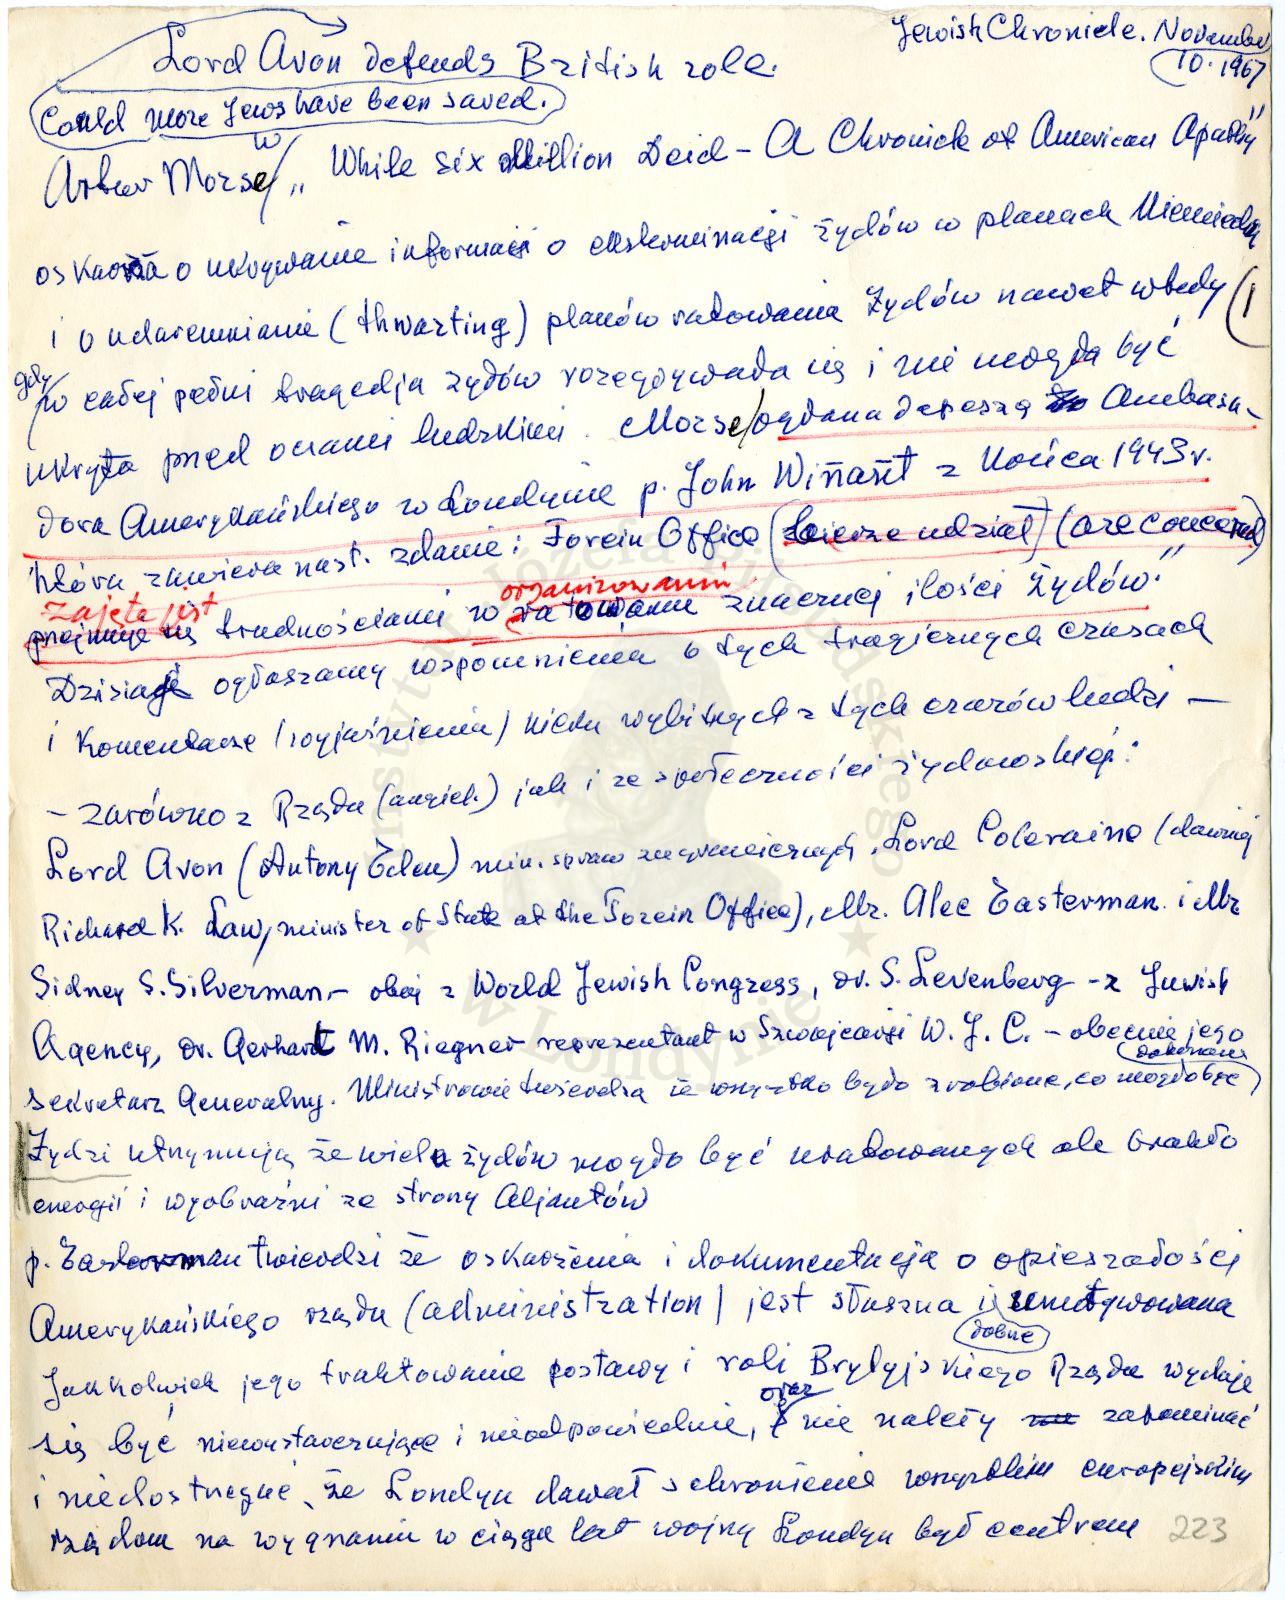 Jewish Chronicle. November
10. 1967
Lord Avon defends British role.
Could more Jews have been saved.
w
Artur Morse „While six Million Deid – A Chronicle of American Apathy"
oskarża o ukrywanie informacji o eksterminacji żydów w planach Niemieckich
i o udaremnianie (thwarting) planów ratowania Żydów nawet wtedy (1
gdy w całej pełni tragedja żydów rozegrywała się i nie mogła być
ukryta przed oczami ludzkimi. Morse ogłana depeszą Ambasa-
dora Amerykańskiego w Londynie p. John Winant z Końca 1943 r.
która zawiera nast. zdanie: Forein Office (bierze udział) (are concerned)
zajęte jest organizowaniu
przejmuje się trudnościami w ratowaniu znacznej ilości Żydów."
Dzisiaj ogłaszamy wspomnienia o tych tragicznych czasach
i Komentarze (wyjaśnienia) kilku wybitnych z tych czasów ludzi –
– zarówno z Rządu (angiel.) jak i ze społeczności żydowskiej:
Lord Avon (Antony Eden) min. spraw zagranicznych, Lord Coleraine (dawniej
Richard K. Law, minister of State at the Forein Office), Mr. Alec Easterman i Mr
Sidney S. Silverman – obaj z World Jewish Congress, dr. S. Levenberg – z Juwish
Agency, dr. Gerhart M. Riegner reprezentant w Szwajcarji W. J. C. – obecnie jego
dokonane
sekretarz Generalny. Ministrowie twierdzą że wszystko było zrobione, co mogło być
Żydzi utrzymują że wielu żydów mogło być uratowanych ale brakło
energii i wyobraźni ze strony Aljantów
p. Easterman twierdzi że oskarżenia i dokumentacja o opieszałości
Amerykańskiego rządu (administration) jest słuszna i umotywowana
dobrze
Jakkolwiek jego traktowanie postawy i roli Brytyjskiego Rządu wydaje
oraz
się być niewystarczające i nieodpowiednie, nie należy zapominać
i niedostrzegać, że Londyn dawał schronienie wszystkim europejskim
rządom na wygnaniu w ciągu lat wojny Londyn był centrem 223
Instytut Józefa Piłsudskiego
w Londynie